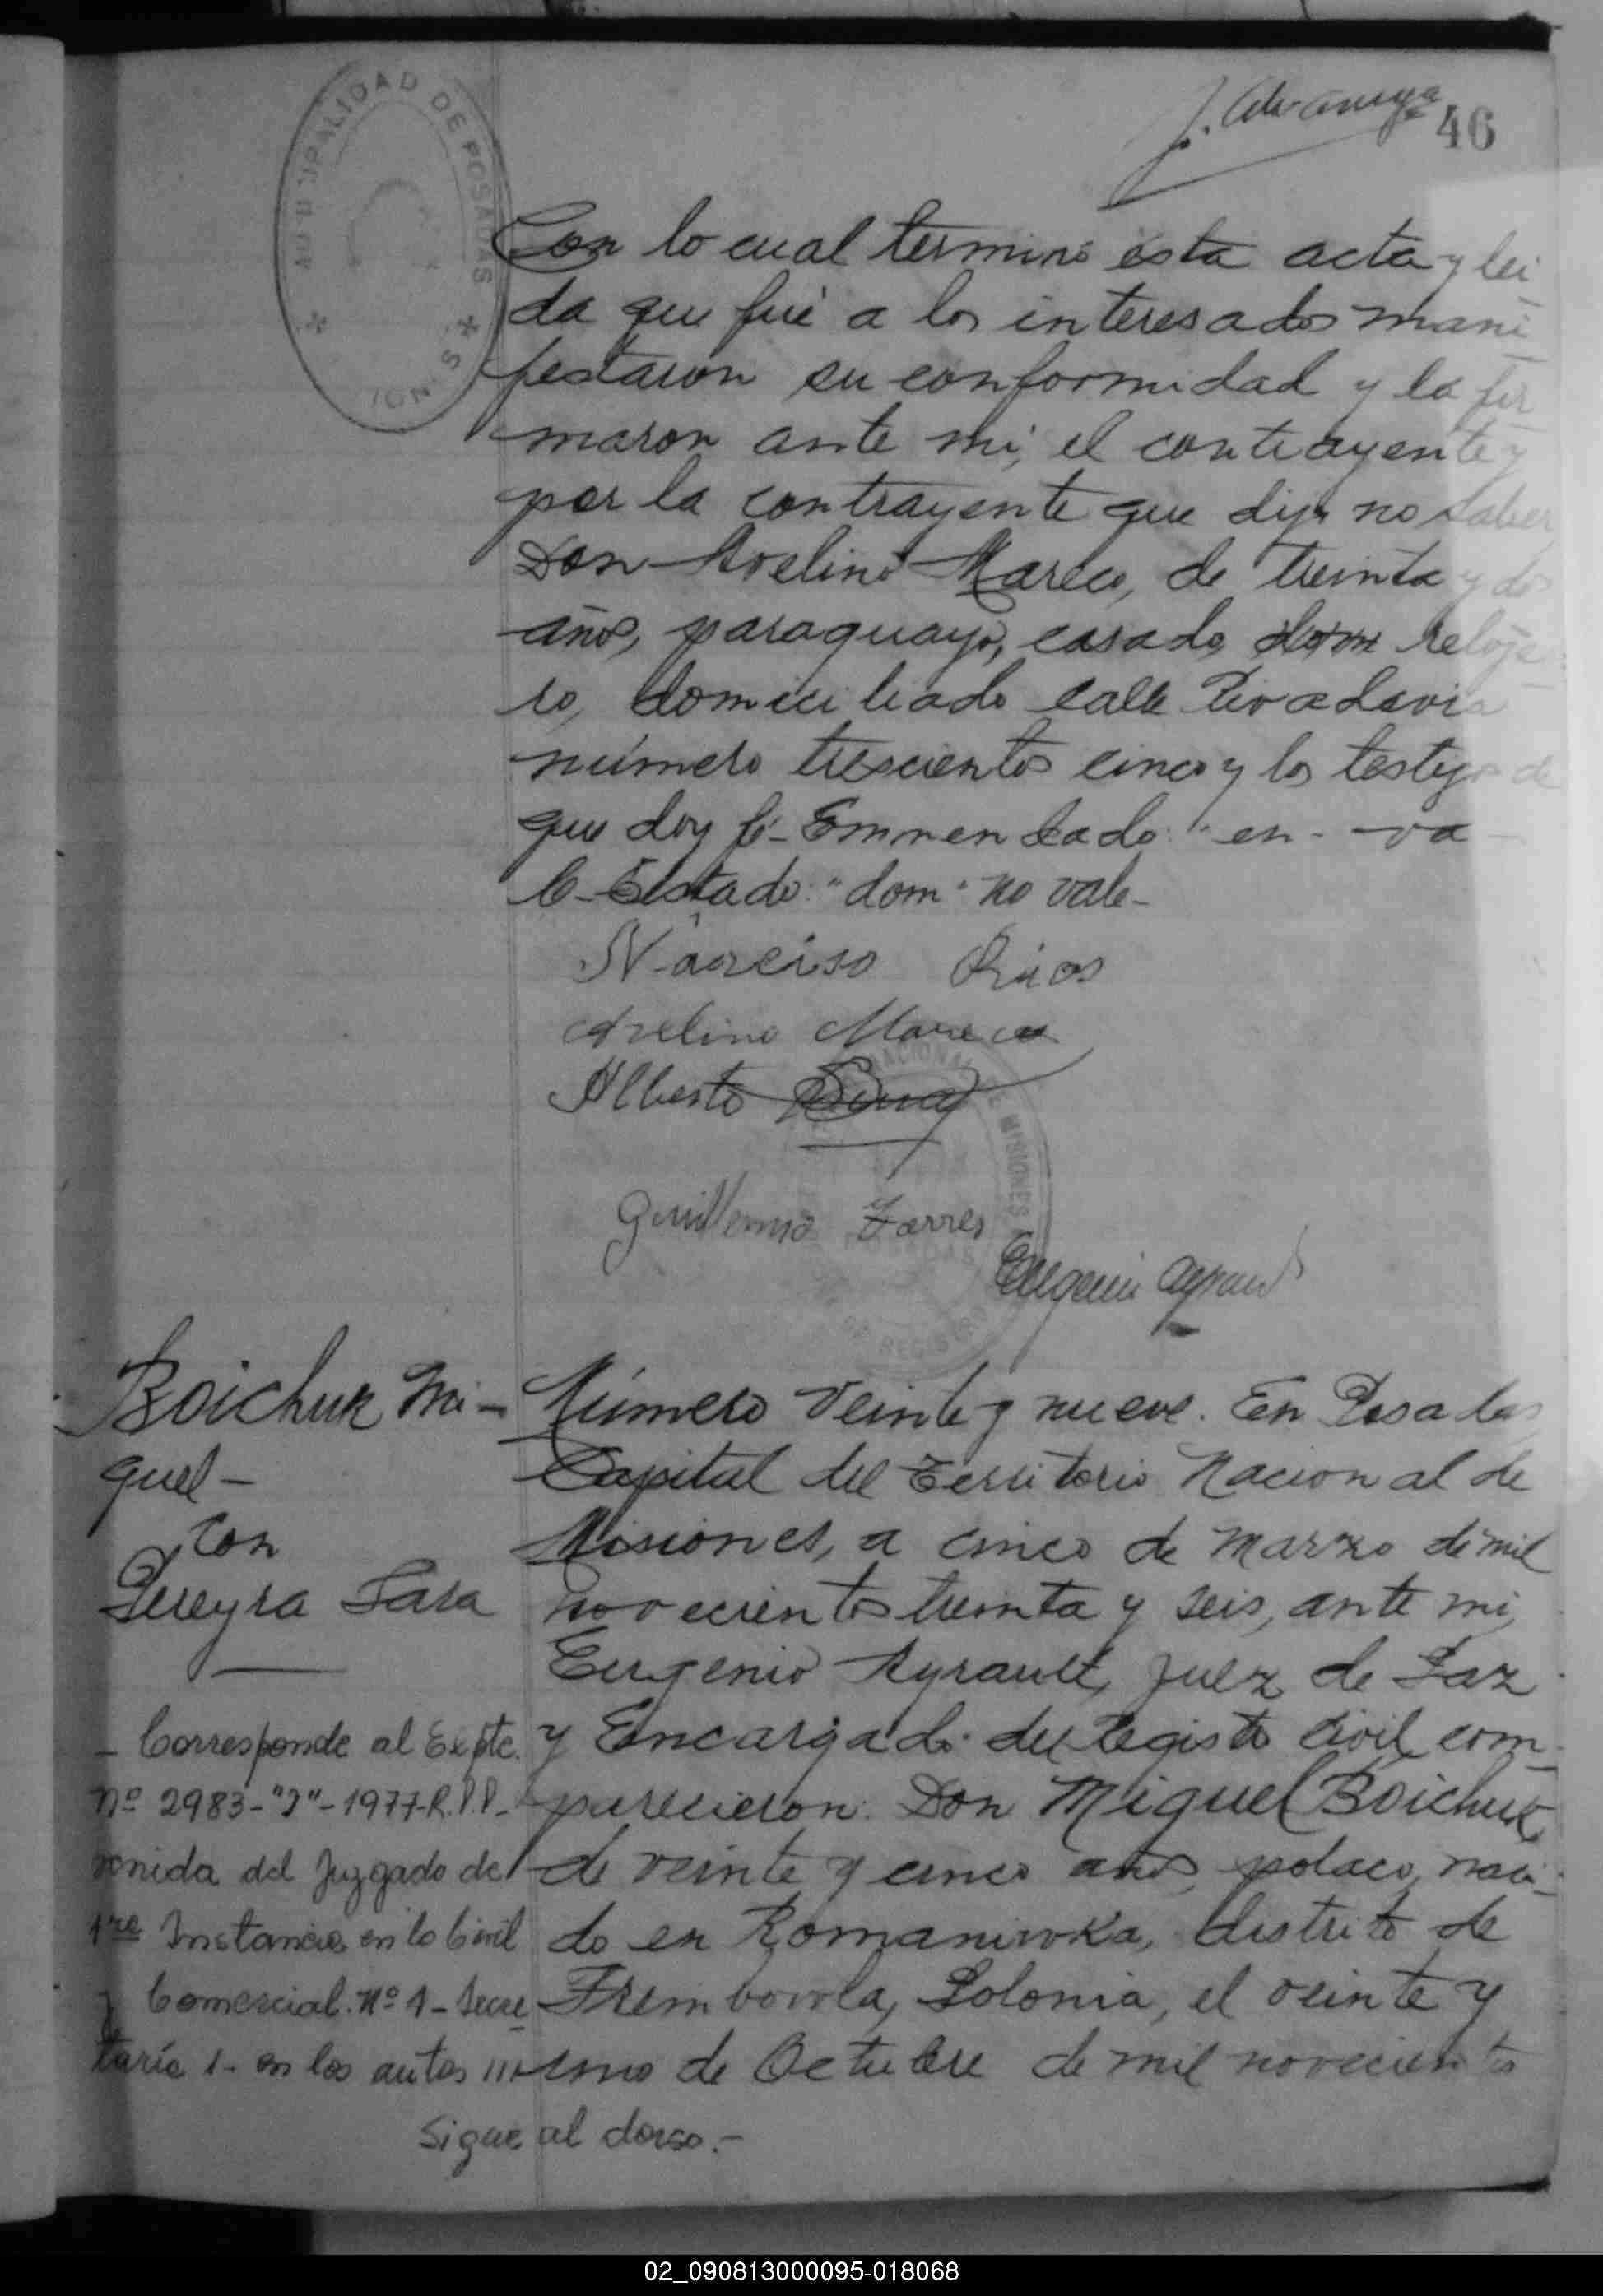 46
MUNICIPALIDAD DE POSADAS
Con lo cual terminó esta acta y lei
da que fué a los interesados mani
festaron su conformidad y la fir
maron ante mi, el contrayente y
por la contrayente que dijo no saber
Don Avelino Mareco, de treinta y dos
años, paraguayo, casado, dom reloje
ro, domiciliado calle Rivadavia
número trescientos cinco y los testigos de
que doy fé - Enmendado: "en" - va
le - Testado: "dom" no vale -
Narciso Rios
Avelino Mareco
Alberto
Guillermo Torres
Eugenio Ayrault
NACIONAL DE MISIONES
REGISTRO
Boichuk Mi-
guel -
con
Pereyra Sara
Número veinte y nueve. En Posadas
Capital del Territorio Nacional de
Misiones, a cinco de Marzo de mil
novecientos treinta y seis, ante mi,
Eugenio Ayrault, Juez de Paz
y Encargado del Registro Civil, com
parecieron: Don Miguel Boichuk,
de veinte y cinco años, polaco, naci-
do en Romaniwka, distrito de
Trembowla, Polonia, el veinte y
uno de Octubre de mil novecientos
- Corresponde al Expte.
Nº 2983-"J"-1977-R.P.P.-
venida del Juzgado de
1ra Instancia en lo Civil
y Comercial. Nº 1 - Secre
taría 1 - en los autos ///
Sigue al dorso.-
02_090813000095-018068